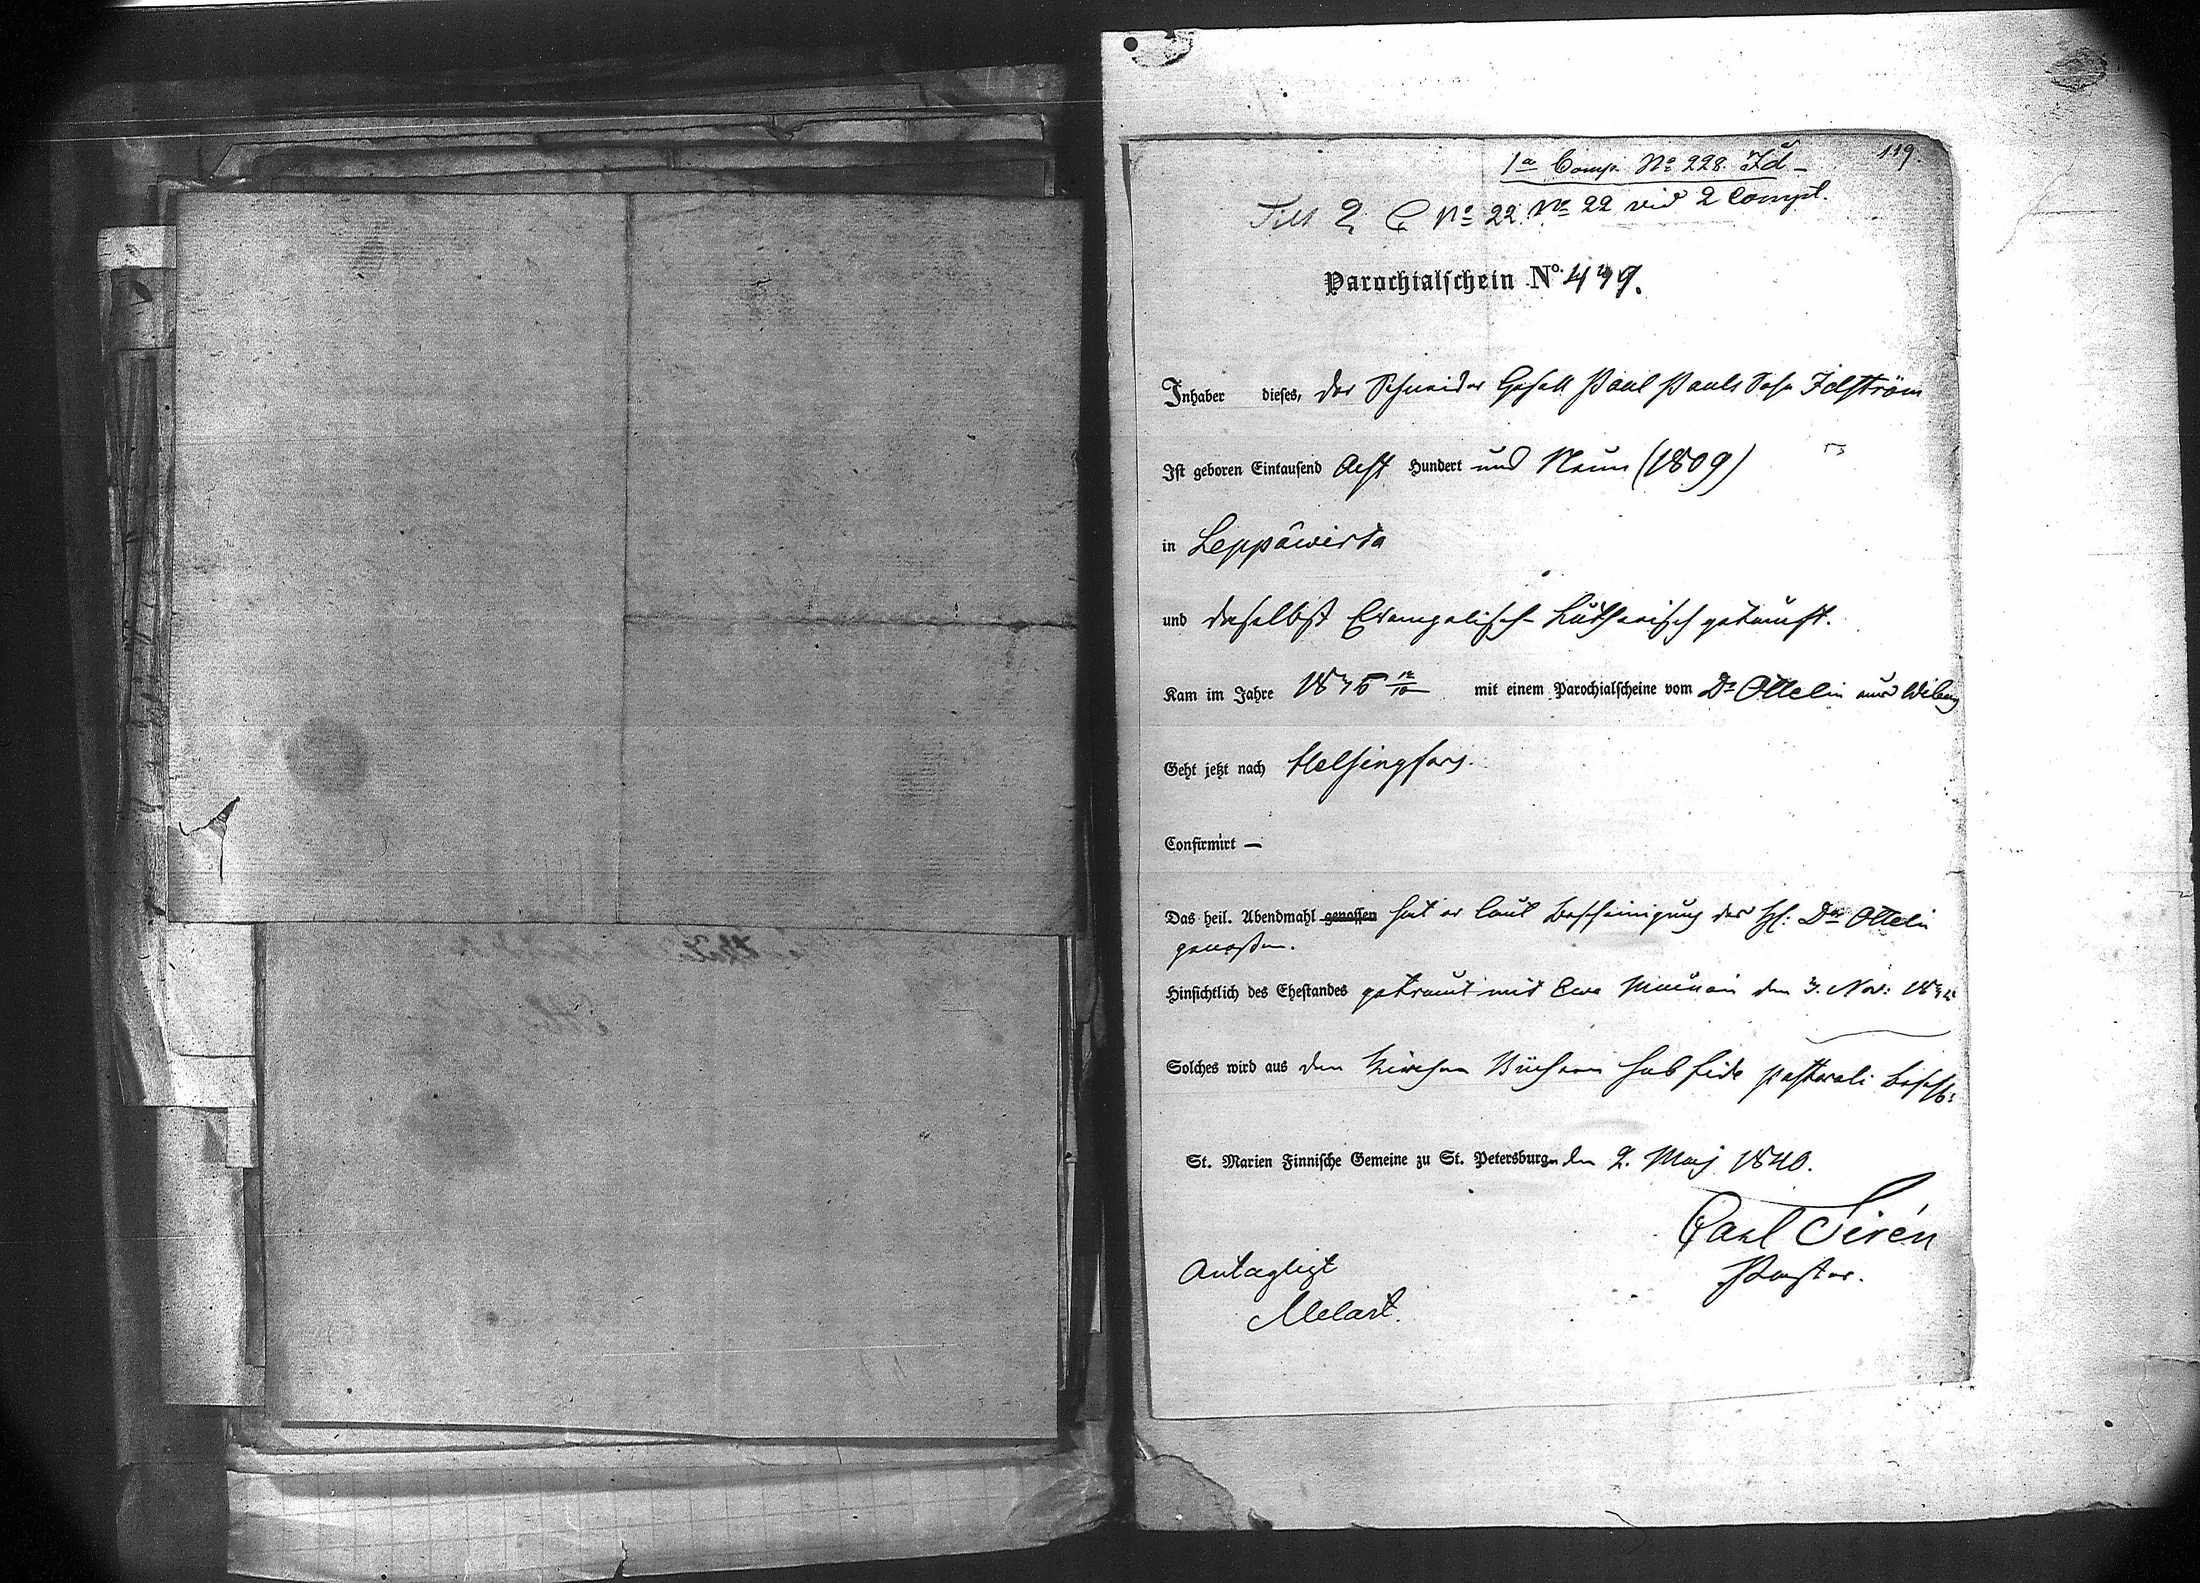 119.
1a Comp. No 228. Id
Till 2 C No 22 No 22 vid 2 Compt.
Parochialschein No. 449.
Inhaber dieses, der Schneider Gesell Paul Pauls Sohn Idström
Ist geboren Eintausend Acht Hundert und Neun (1809)
in Leppäwirta
und daselbst Evangelisch-Lutherisch getauft.
Kam im Jahre 1835 12/10 mit einem Parochialscheine vom Dr Ottelin aus Wiburg
Geht jetzt nach Helsingfors.
Confirmirt —
Das heil. Abendmahl genossen hat er laut Bescheinigung des H: Dr Ottelin
genoßen.
Hinsichtlich des Ehestandes getraut mit Ewa den 3. Nov:
Solches wird aus den Kirchen Büchern sub fide pastorali
St. Marien Finnische Gemeine zu St. Petersburg den 2. Maj 1840.
Carl Sirén
Pastor.
Antagligt
Melart.